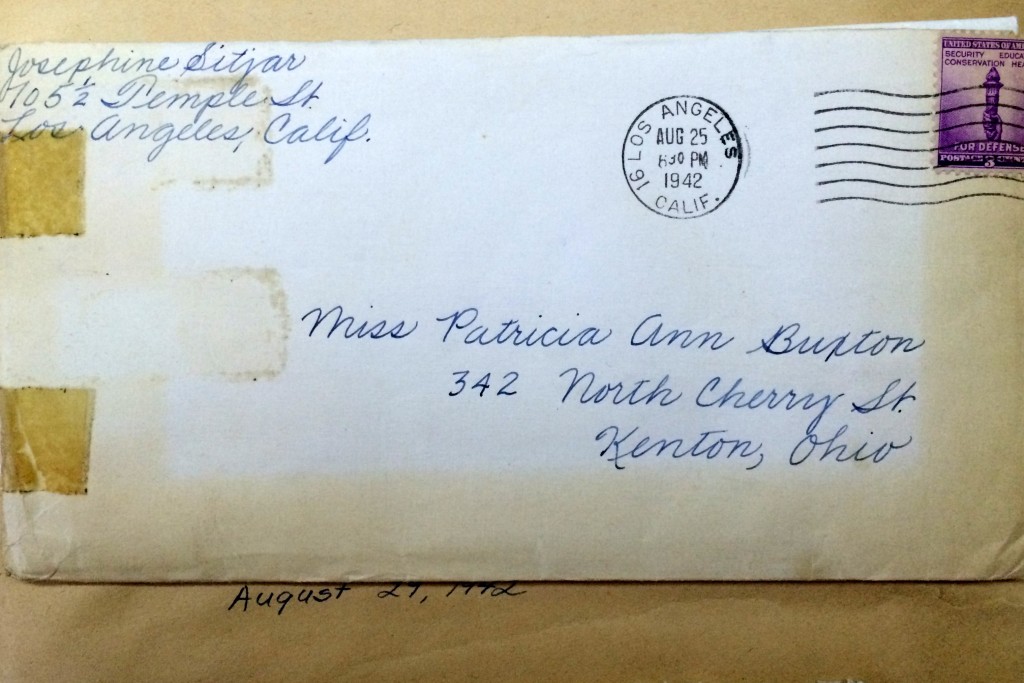 Josephine Sitjar
705½ Temple St.
Los Angeles, Calif.
LOS ANGELES
AUG 25
6 30 PM
1942
16 CALIF.
UNITED STATES OF AM
SECURITY EDUCA
CONSERVATION HEA
FOR DEFENSE
POSTAGE 3 CENTS
Miss Patricia Ann Buxton
342 North Cherry St.
Kenton, Ohio
August 1942